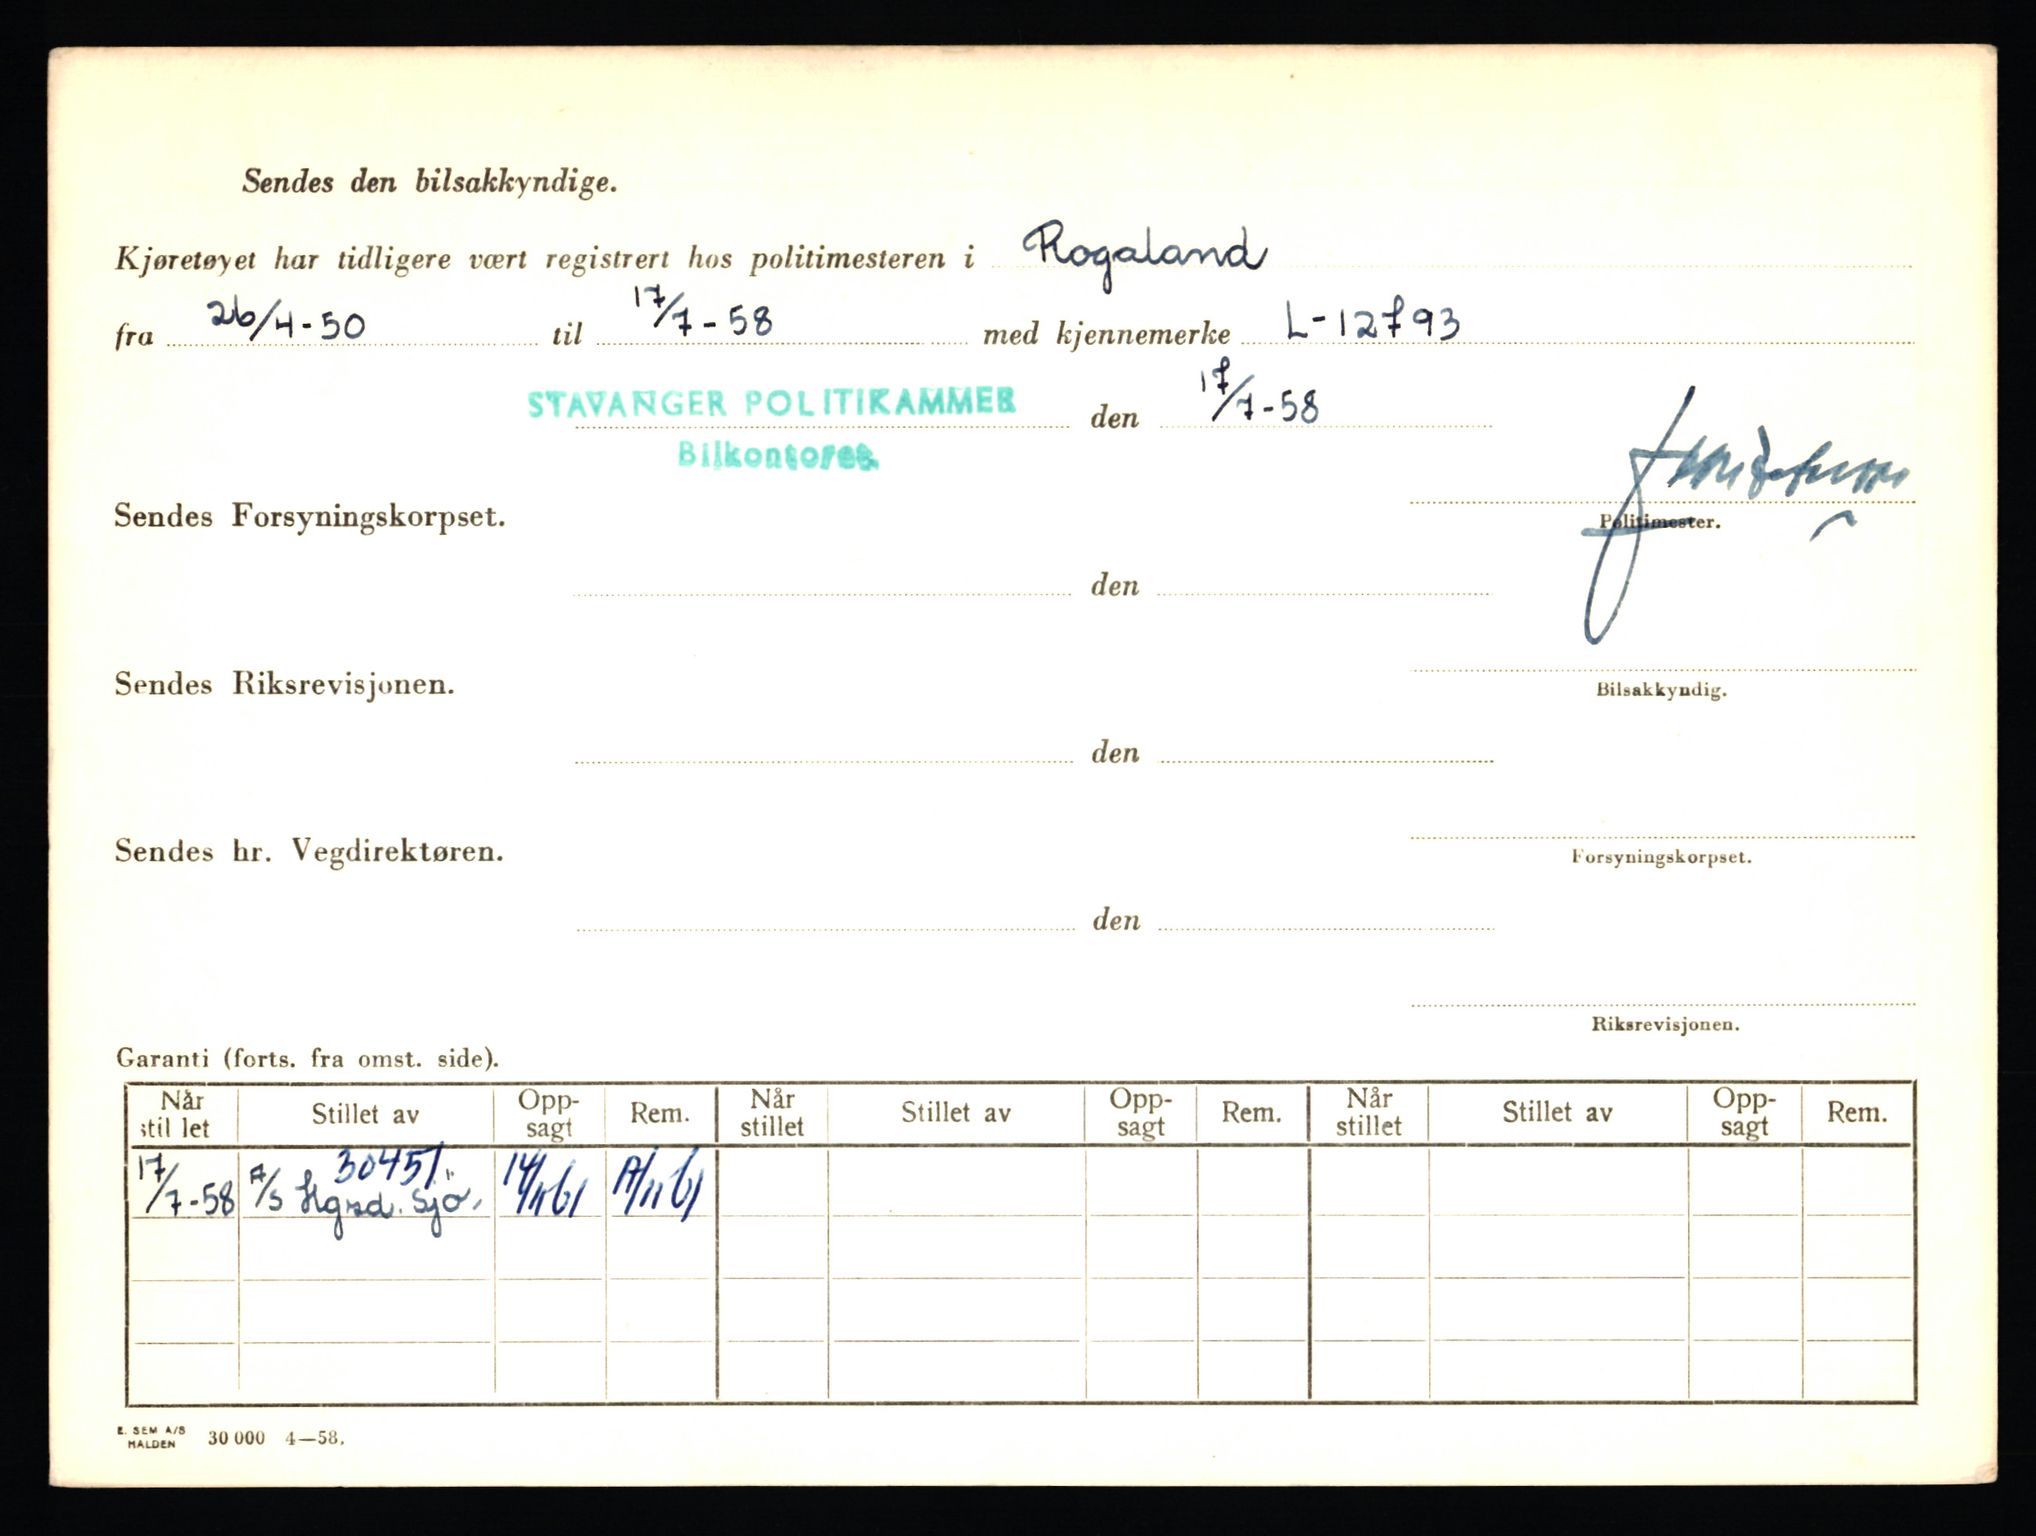 Sendes den bilsakkyndige.
Kjøretøyet har tidligere vært registrert hos politimesteren i Rogaland
fra 26/4-50 til 17/7-58 med kjennemerke L-12793
STAVANGER POLITIKAMMER den 17/7-58
Bilkontoret.
Sendes Forsyningskorpset.
Politimester.
den
Sendes Riksrevisjonen.
Bilsakkyndig.
den
Sendes hr. Vegdirektøren.
Forsyningskorpset.
den
Riksrevisjonen.
Garanti (forts. fra omst. side).
Når stillet Stillet av Opp-sagt Rem. Når stillet Stillet av Opp-sagt Rem. Når stillet Stillet av Opp-sagt Rem.
30451
17/7-58 A/S Hgsd. Sjö. 14/11 61 17/11 61
E. SEM A/S
HALDEN 30 000 4—58.